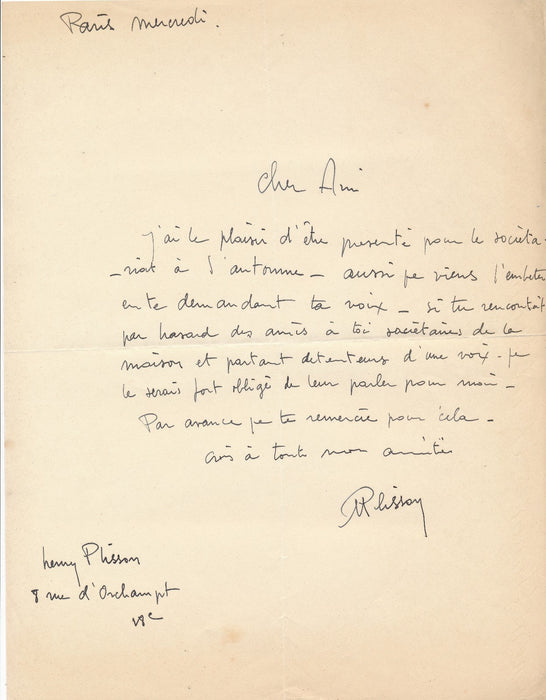 Paris mercredi.
Cher Ami
j'ai le plaisir d'être presenté pour le sociéta
-riat à l'automne - aussi je viens t'embeter
en te demandant ta voix - si tu rencontrait
par hasard des amis à toi sociétaires de la
maison et partant detenteurs d'une voix - je
te serais fort obligé de leur parler pour moi -
Par avance je te remercie pour cela -
crois à toute mon amitié
HPlisson
henry Plisson
8 rue d'Orchampt
18e